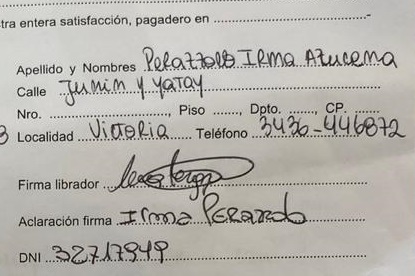 tra entera satisfacción, pagadero en ...-
Apellido y Nombres Perazzolo Irma Azucena
Calle Junin y Yatay
Nro. ..., Piso ..., Dpto. ... CP. ...
Localidad Victoria Teléfono 3436-446872
Firma librador
Aclaración firma Irma Perazzolo
DNI 32717949